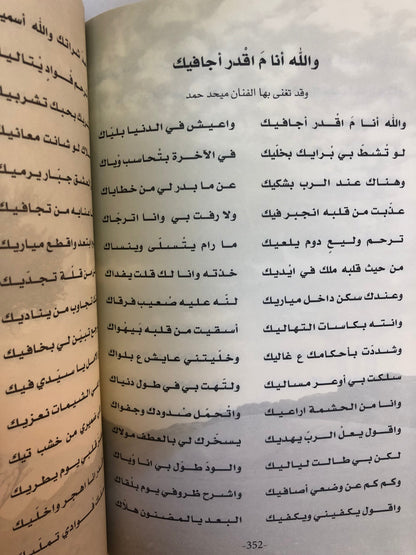 والله أنا مَ اقْدر أجافيك
وقد تغنى بها الفنان ميحد حمد
والله أنا مَ اقْدر أجافيك واعيش في الدنيا بليّاك
لو تْشطّ بي بْرايك بخلّيك في الآخرة بتْحاسب ويّاك
وهناك عند الرب بشكيك عن ما بدر لي من خطاياك
عذّبت من قلبه انجبر فيك ولا رفت بي وانا اترجّاك
ترحم وليعٍ دوم يلعيك ما رام يتْسلّى وينساك
من حيث قلبه ملك في ايْديك خذته وانا لك قلت يفداك
وعندك سكن داخل مياريك لنّه عليه صْعيب فرقاك
وانته بكاسات التهاليك أسقيت من قلبه يْبيْهواك
وشددّت بأحكامك ع غاليك وخلّيتني عايش ع بلواك
سلكت بي أوعر مساليك ولتْهت بي في طول دنياك
وانا من الحشمة اراعيك واتْحمّل صْدودك وجفواك
واقول يعلّ الربّ يهديك يسخّرك لي بالعطف مولاك
لكن بي طالت لياليك والودّ طوّل بي انا وْياك
وكم كم عن وضعي أصافيك واشرح ظروفي يوم بلْقاك
واقول يكفيني ويكفيك البعد يالمضنون هلاّك
-352-
شراتك والله أسميك
م فواد يْتاليك
بحبك تشربيك
لو شانت معانيك
لعشق جبّار يرميك
عذابه من تجافيك
واقطع مياريك
من قلّة تجدّيك
تجاوب من يناديك
تبيّن لي بخافيك
يا سيّدي فيك
الشيمات نعزيك
من خشب تيك
يوم يطريك
انا اهجر واخلّيك